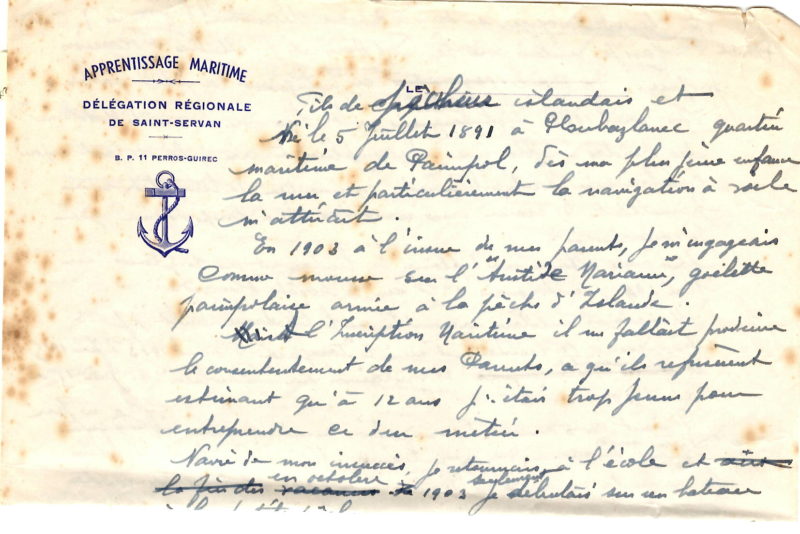 APPRENTISSAGE MARITIME
DÉLÉGATION RÉGIONALE
DE SAINT-SERVAN
B. P. 11 PERROS-GUIREC
LE
Fils de pêcheur islandais et
Né le 5 Juillet 1891 à Ploubazlanec quartier
maritime de Paimpol, dès ma plus jeune enfance
la mer et particulièrement la navigation à voile
m'attirait.
En 1903 à l'insue de mes parents, je m'engageais
comme mousse sur l' Marianne", goëlette
paimpolaise armée à la pêche d'Islande.
l'Inscription Maritime il me fallait produire
le consentement de mes Parents, a qu'ils refusèrent
estimant qu'à 12 ans j'étais trop jeune pour
entreprendre ce dur métier.
Navré de mon insuccès, je retournais à l'école et
la fin des vacances en octobre 1903 seulement je débutais sur un bateau